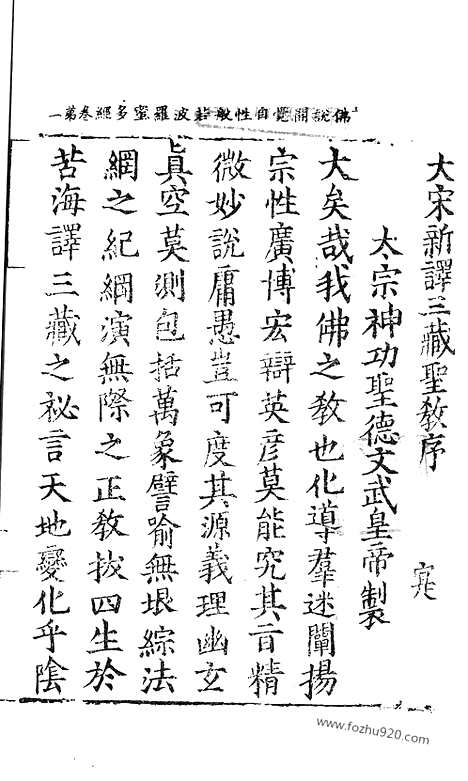 佛說開覺自性般若波羅蜜多經卷第一
大宋新譯三藏聖教序
太宗神功聖德文武皇帝製
大矣哉我佛之教也化導羣迷闡揚
宗性廣博宏辯英彥莫能究其旨精
微妙說庸愚豈可度其源義理幽玄
真空莫測包括萬象譬喻無垠綜法
網之紀綱演無際之正教拔四生於
苦海譯三藏之祕言天地變化乎陰
www.fozhu920.com